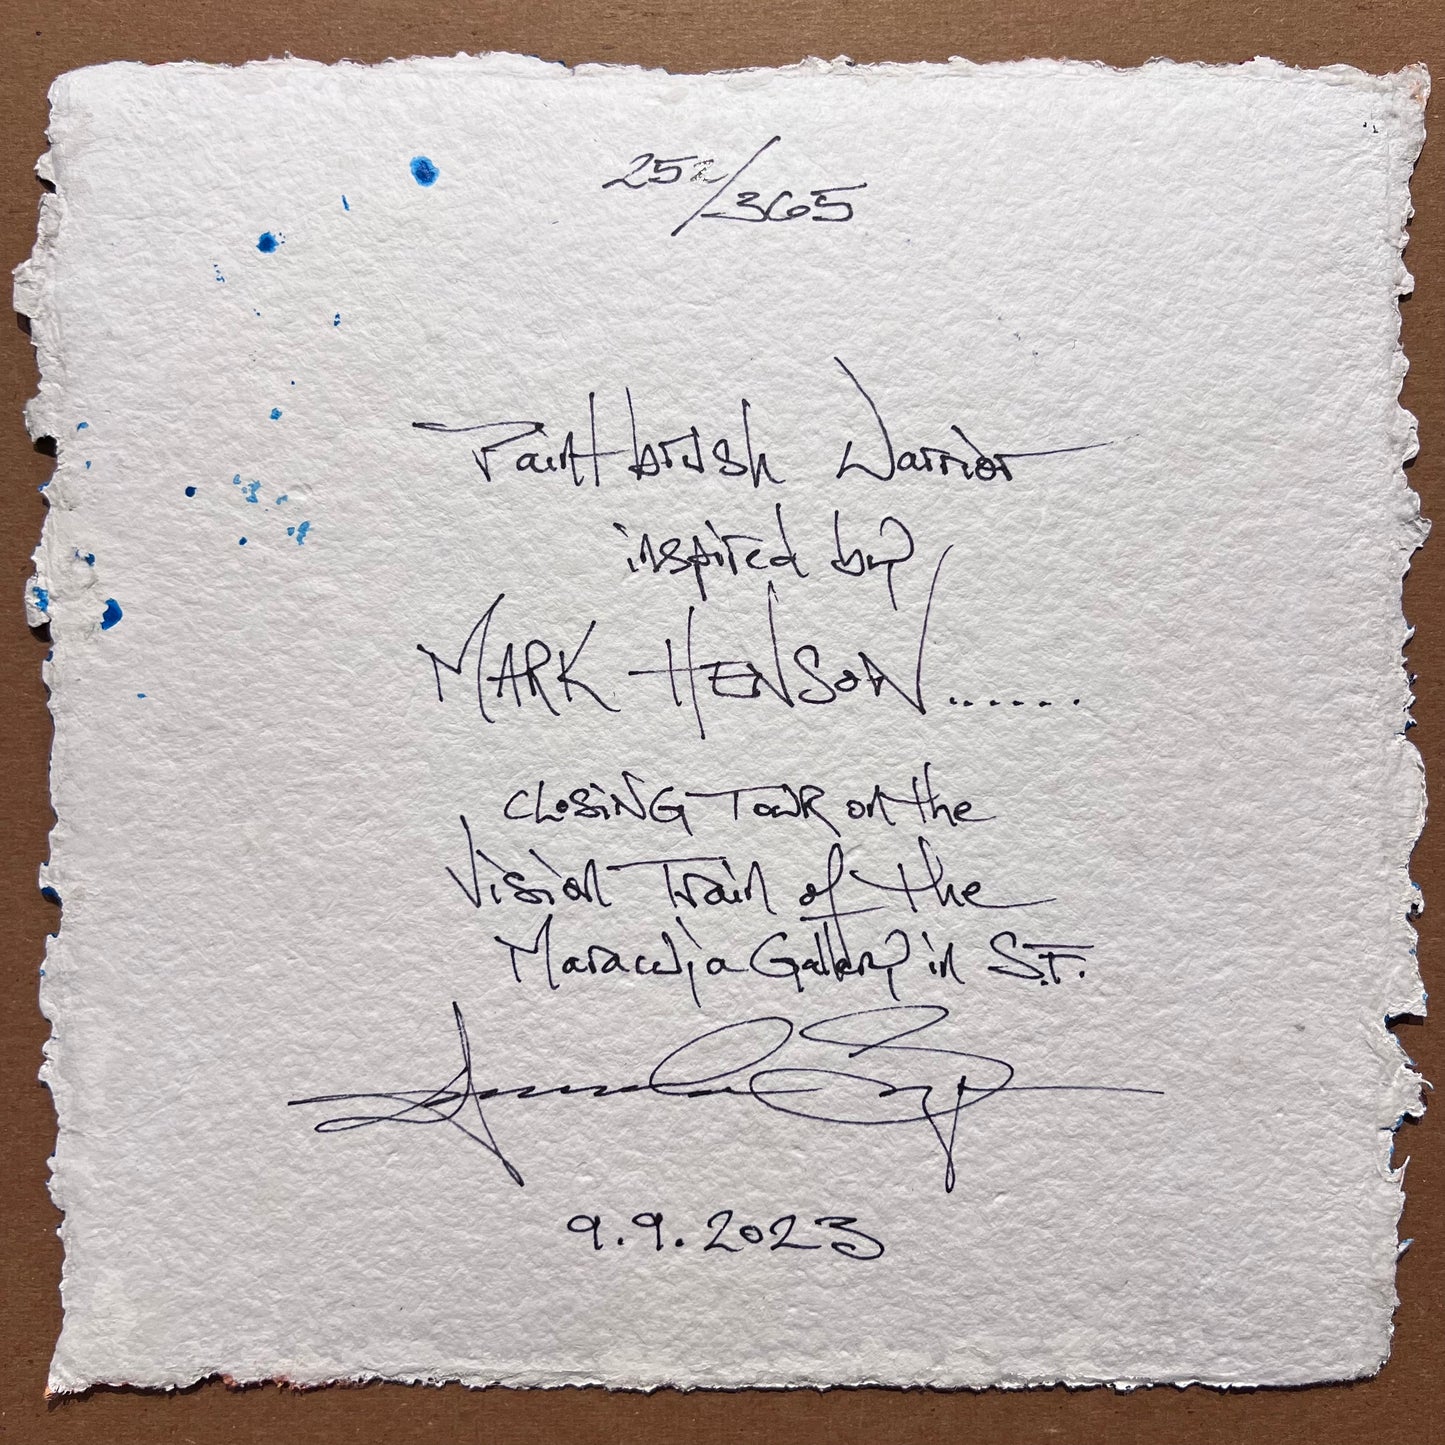 252/365
Paintbrush Warrior
inspired by
MARK HENSON......
CLOSING TOUR on the
Vision Train of the
Maracuja Gallery in S.F.
9.9.2023